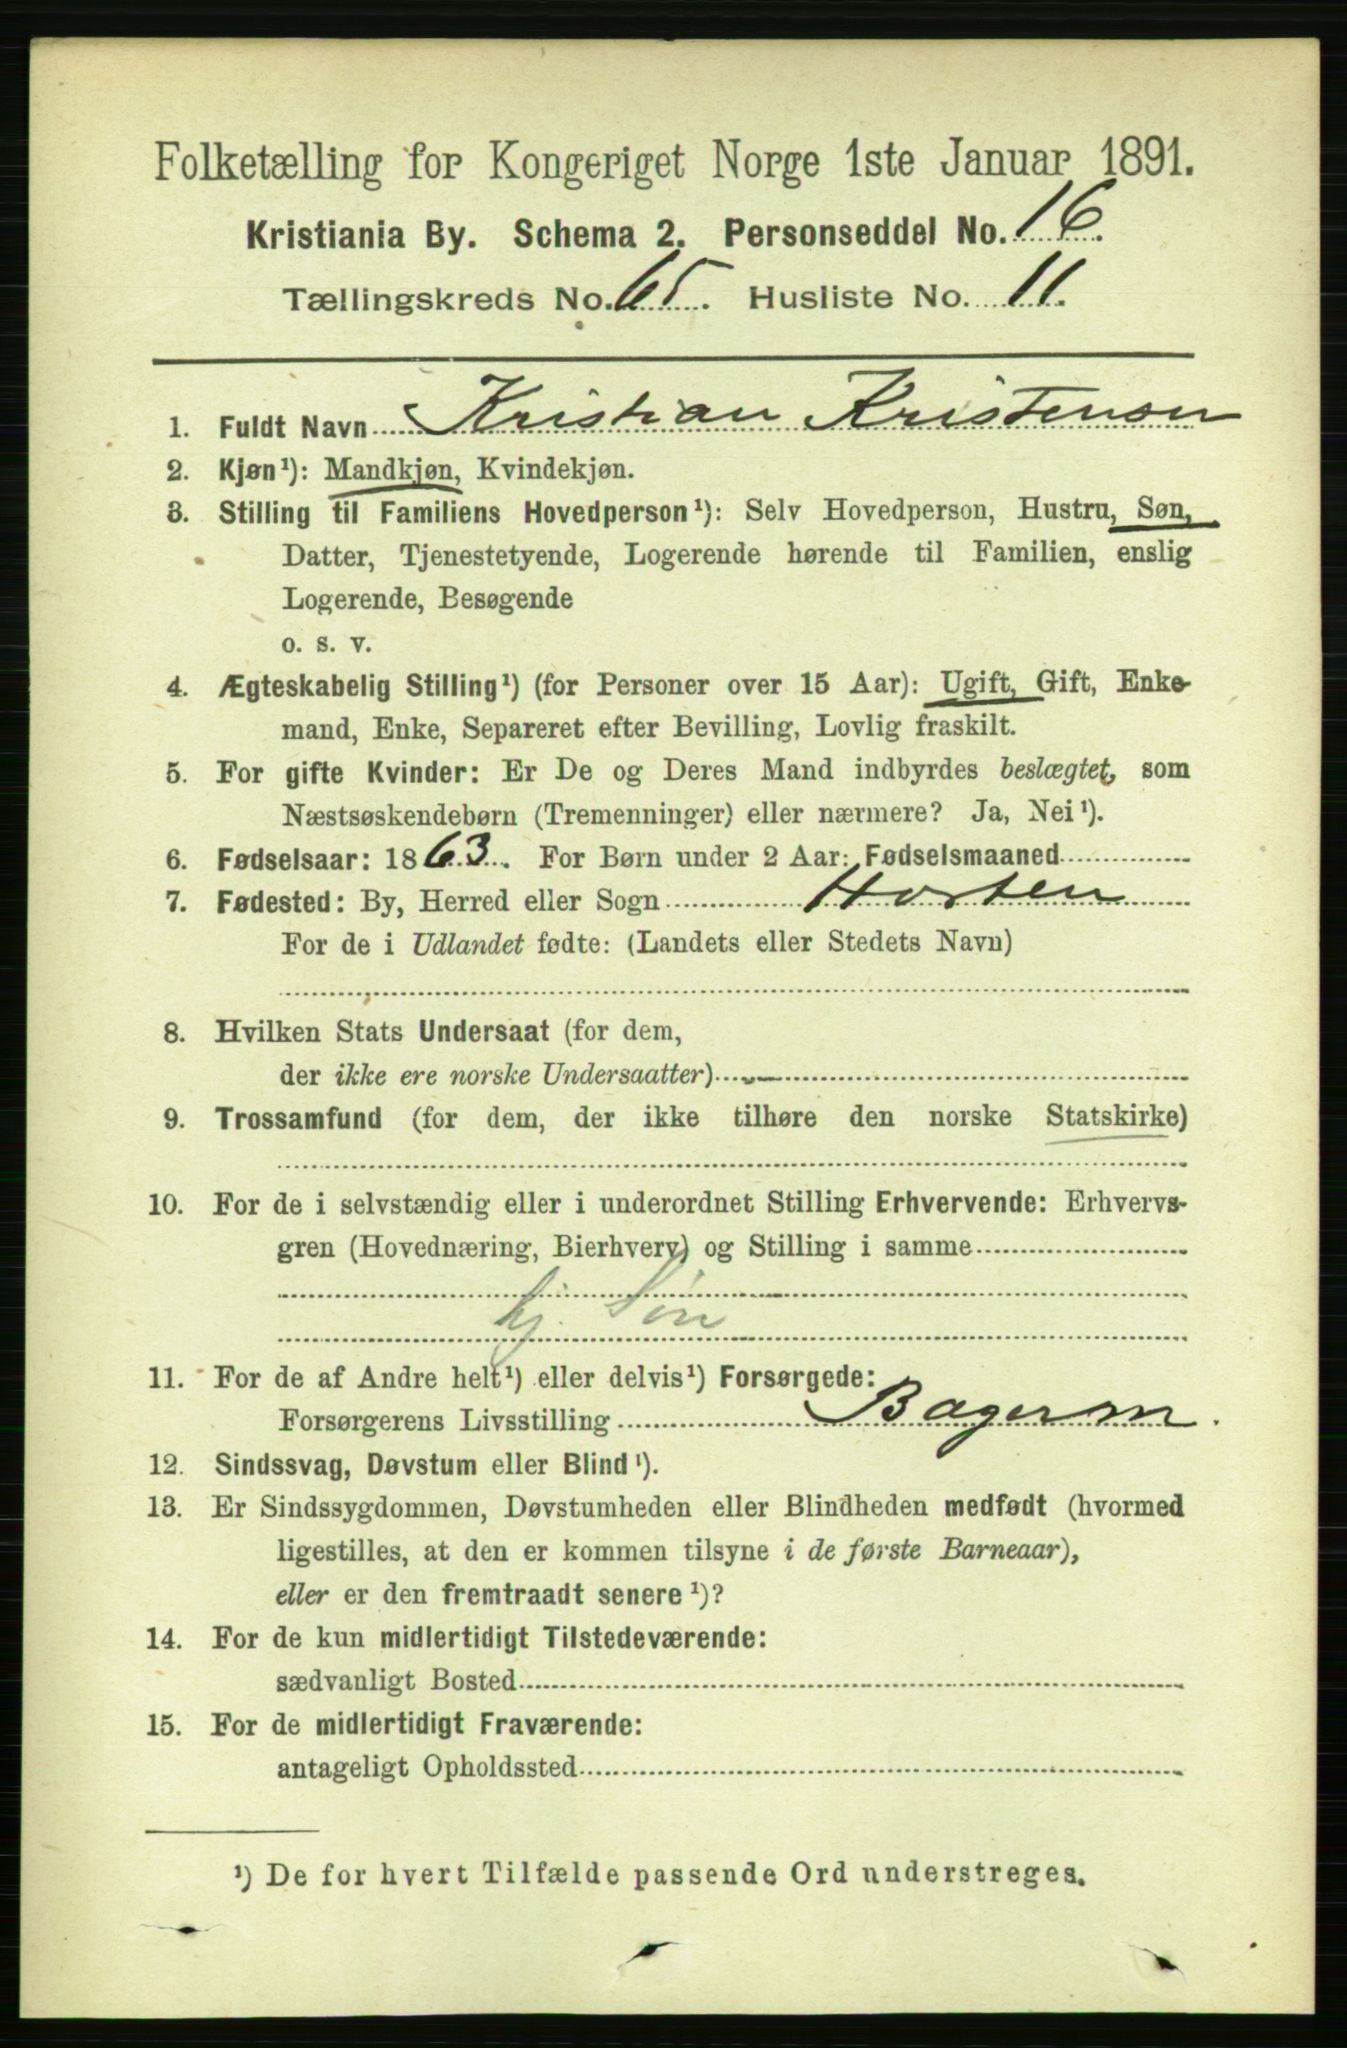 Folketælling for Kongeriget Norge 1ste Januar 1891.
Kristiania By. Schema 2. Personseddel No. 16.
Tællingskreds No. 65. Husliste No. 11.
1. Fuldt Navn Kristian Kristensen
2. Kjøn¹): Mandkjøn, Kvindekjøn.
3. Stilling til Familiens Hovedperson¹): Selv Hovedperson, Hustru, Søn,
Datter, Tjenestetyende, Logerende hørende til Familien, enslig
Logerende, Besøgende
o. s. v.
4. Ægteskabelig Stilling¹) (for Personer over 15 Aar): Ugift, Gift, Enke-
mand, Enke, Separeret efter Bevilling, Lovlig fraskilt.
5. For gifte Kvinder: Er De og Deres Mand indbyrdes beslægtet, som
Næstsøskendebørn (Tremenninger) eller nærmere? Ja, Nei¹).
6. Fødselsaar: 1863. For Børn under 2 Aar: Fødselsmaaned
7. Fødested: By, Herred eller Sogn Horten
For de i Udlandet fødte: (Landets eller Stedets Navn)
8. Hvilken Stats Undersaat (for dem,
der ikke ere norske Undersaatter)
9. Trossamfund (for dem, der ikke tilhøre den norske Statskirke)
10. For de i selvstændig eller i underordnet Stilling Erhvervende: Erhvervs-
gren (Hovednæring, Bierhverv) og Stilling i samme
hj. Søn
11. For de af Andre helt¹) eller delvis¹) Forsørgede:
Forsørgerens Livsstilling Bagerm.
12. Sindssvag, Døvstum eller Blind¹).
13. Er Sindssygdommen, Døvstumheden eller Blindheden medfødt (hvormed
ligestilles, at den er kommen tilsyne i de første Barneaar),
eller er den fremtraadt senere¹)?
14. For de kun midlertidigt Tilstedeværende:
sædvanligt Bosted
15. For de midlertidigt Fraværende:
antageligt Opholdssted
¹) De for hvert Tilfælde passende Ord understreges.